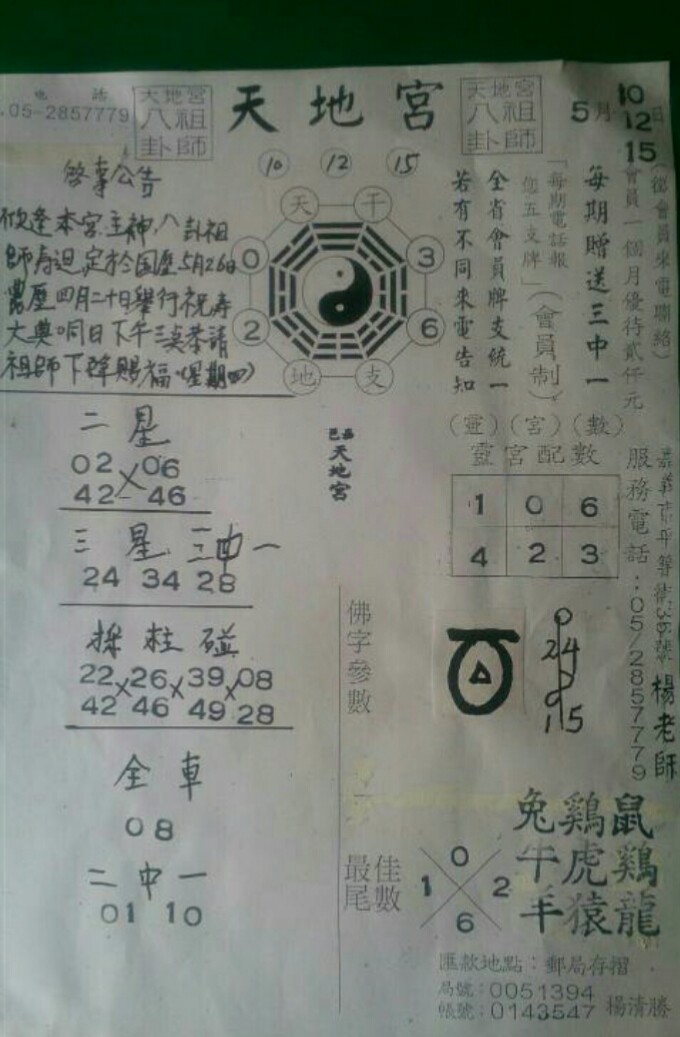 電話
05-2857779
天地宮
八祖
卦師
天地宮
天地宮
八祖
卦師
5月10日
12
15
10 12 15
啓事公告
欣逢本宮主神,八卦祖
師壽誕,定於国歷5月26日
農歷四月二十日舉行祝壽
大典同日下午三點恭請
祖師下降賜福(星期四)
天 干
0 3
2 6
地 支
(從會員來電聯絡)
會員一個月優待貳仟元
每期贈送三中一
「每期電話報
您五支牌」(會員制)
全省會員牌支統一
若有不同來電告知
二星
02×06
42 46
三星、三中一
24 34 28
採柱碰
22×26×39×08
42 46 49 28
全車
08
二中一
01 10
天地宮
(靈)(宮)(數)
靈宮配數
1 0 6
4 2 3
嘉義市平等街36號 楊老師
服務電話:05/2857779
佛字參數
24
15
最佳
尾數
0
1 2
6
兔雞鼠
牛虎雞
羊猿龍
匯款地點:郵局存摺
局號:0051394
帳號:0143547 楊清勝